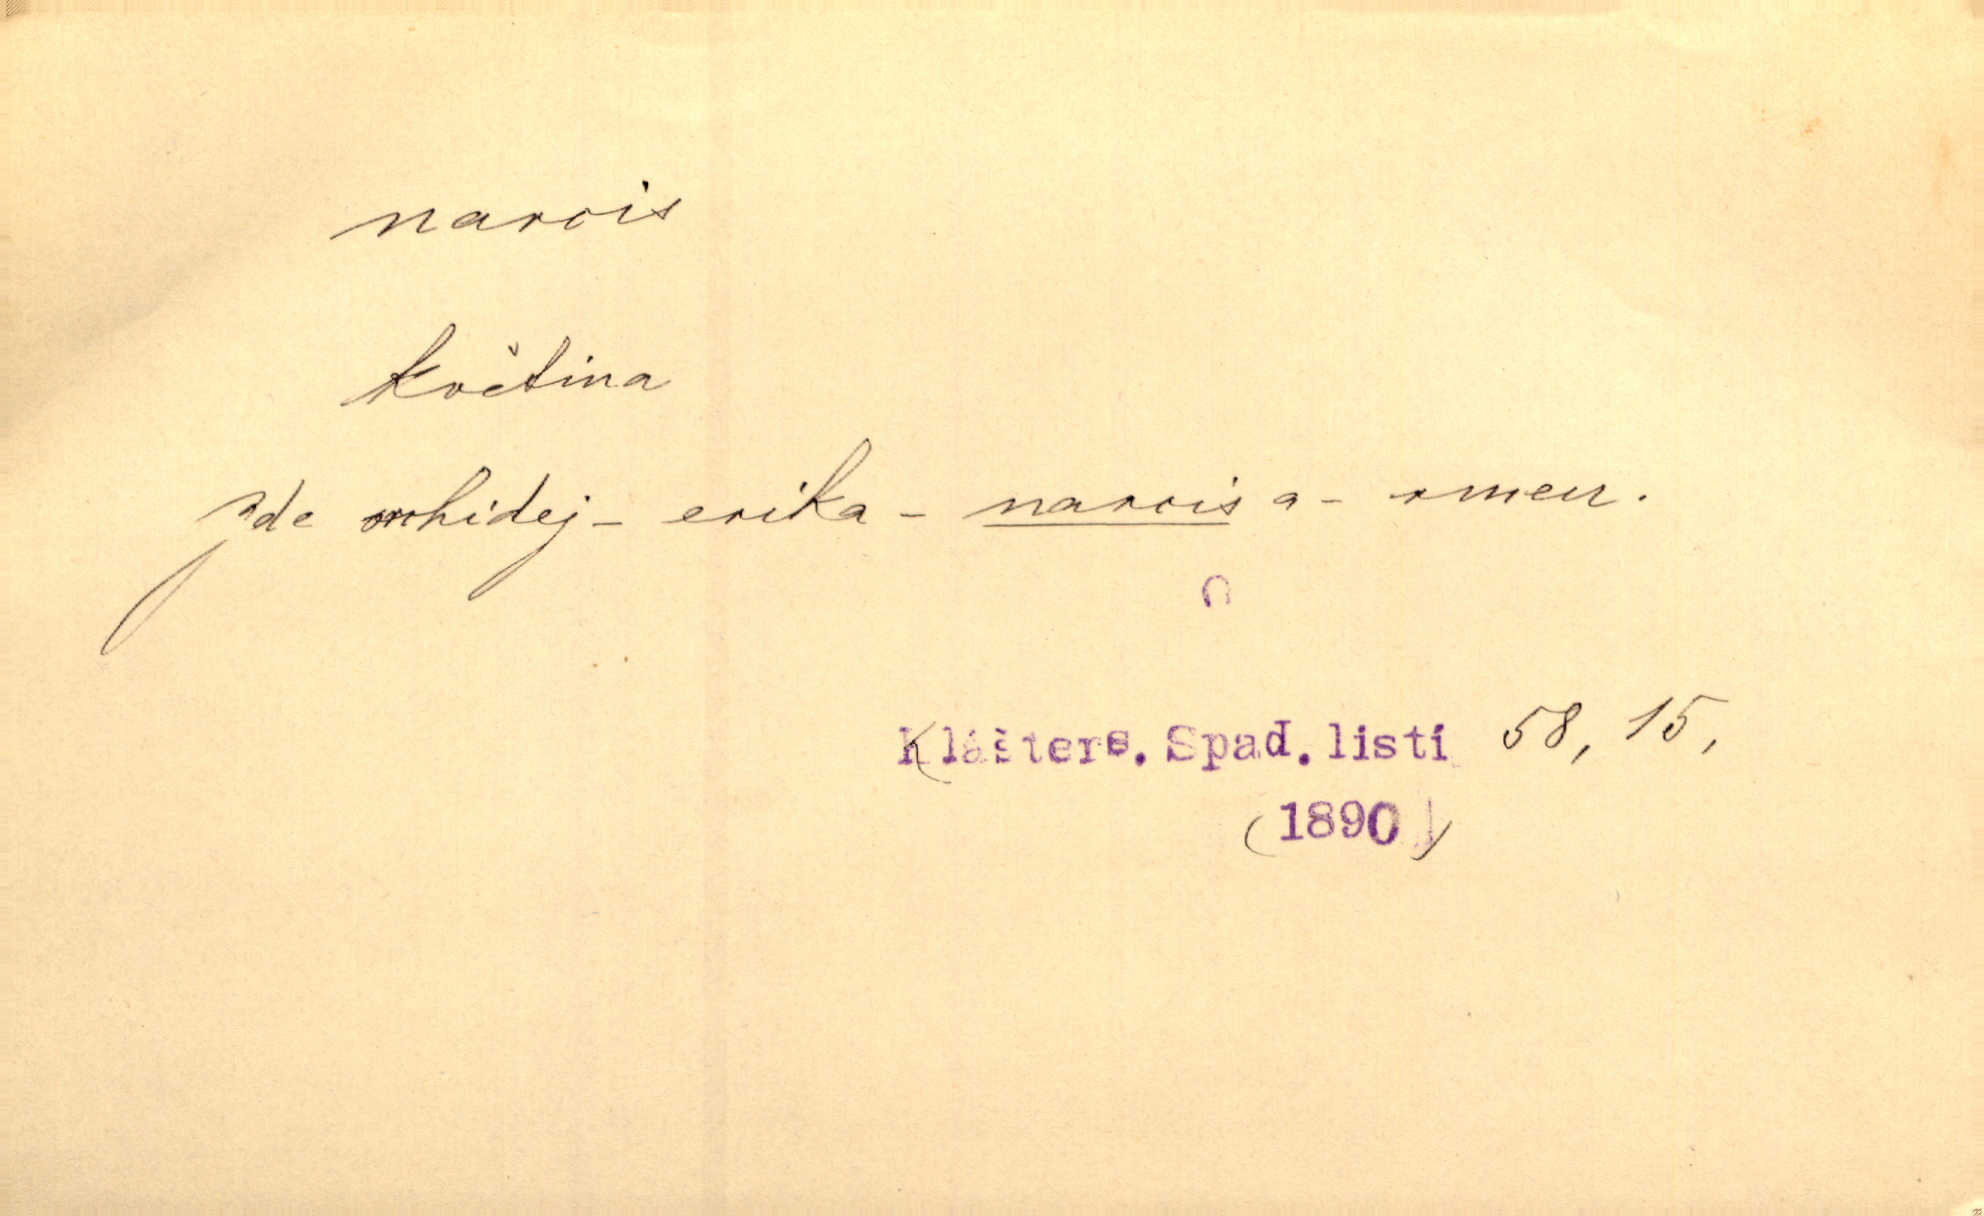 narcis
květina
zde orchidej – erika – narcis a –
Klášters. Spad. listí 58, 15,
(1890)